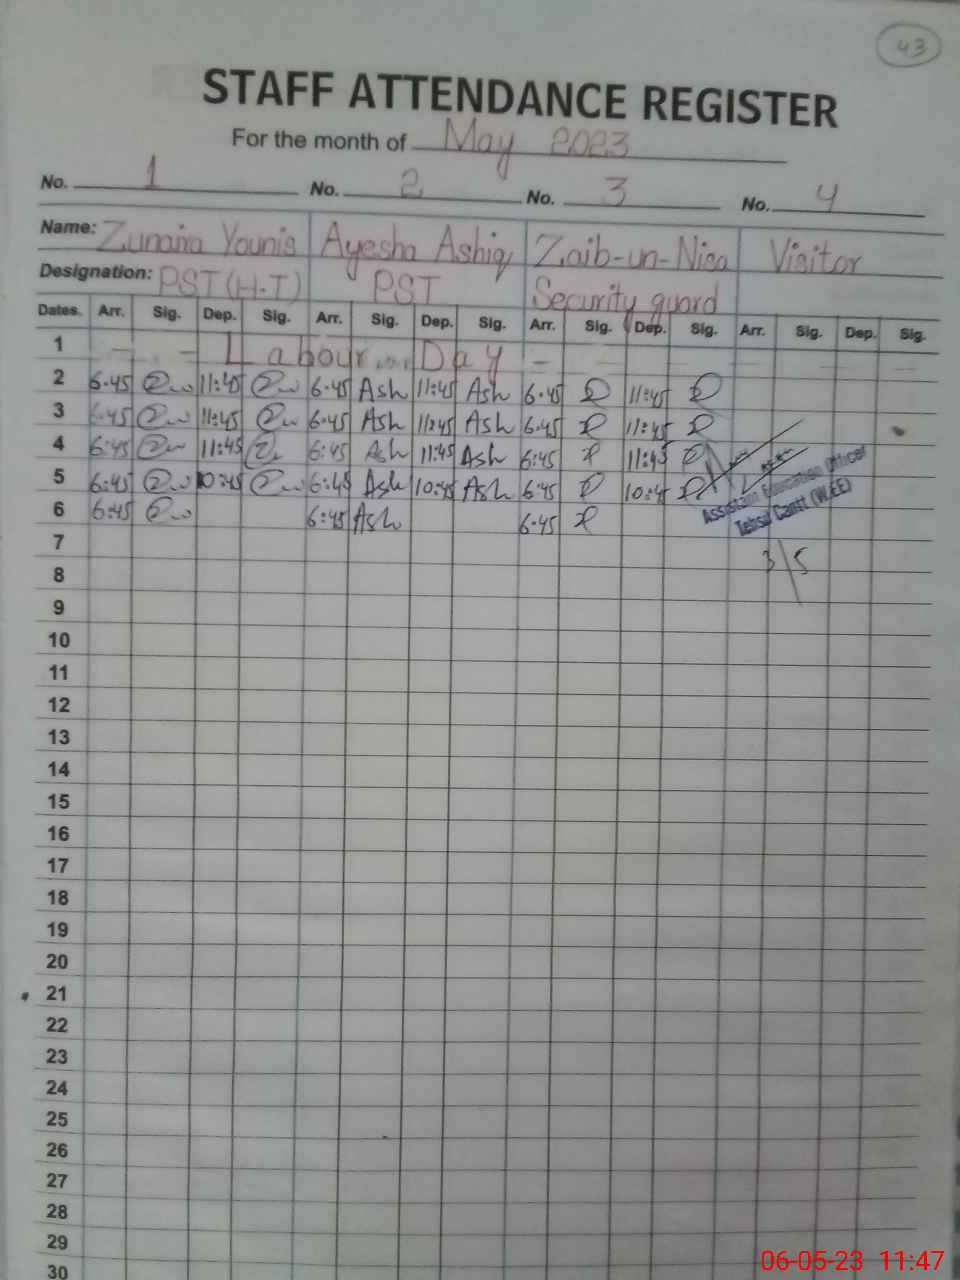 43
STAFF ATTENDANCE REGISTER
For the month of May 2023
No. 1 No. 2 No. 3 No. 4
Name: Zunaira Younis Ayesha Ashiq Zaib-un-Nisa Visitor
Designation: PST(H.T) PST Security guard
Dates. Arr. Sig. Dep. Sig. Arr. Sig. Dep. Sig. Arr. Sig. Dep. Sig. Arr. Sig. Dep. Sig.
1 - - Labour Day -
2 6.45 11:45 6.45 Ash 11:45 Ash 6.45 11:45
3 6.45 11:45 6.45 Ash 11:45 Ash 6.45 11:45
4 6:45 11:45 6:45 Ash 11:45 Ash 6:45 11:45
5 6:45 10:45 6:45 Ash 10:45 Ash 6:45 10:45
6 6:45 6:45 Ash 6.45
Assistant Education Officer
Cantt (W.EE)
3/5
7
8
9
10
11
12
13
14
15
16
17
18
19
20
21
22
23
24
25
26
27
28
29
30
06-05-23 11:47